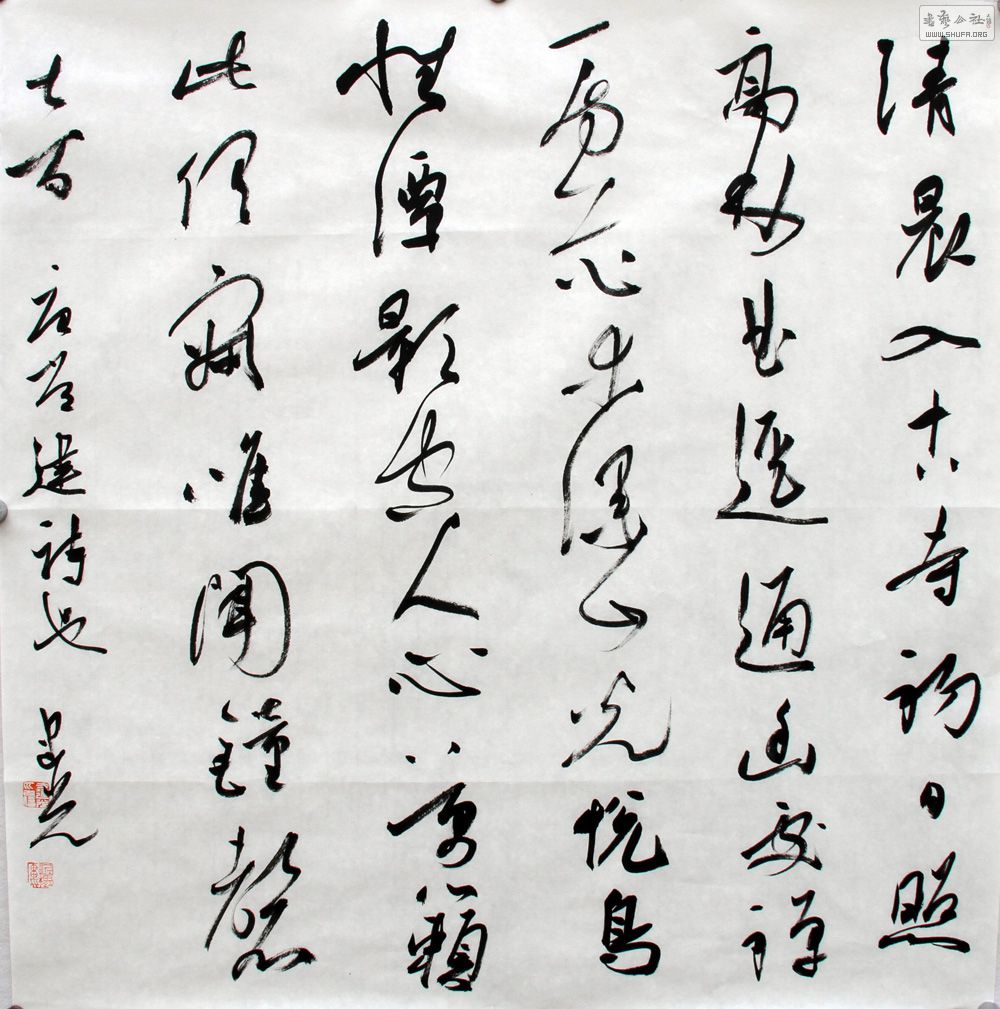 清晨入古寺初日照
高林曲逕通幽處禪
房花木深山光悦鳥
性潭影空人心万籟
此俱寂唯聞鐘磬
音 唐常建詩也
書藝公社
WWW.SHUFA.ORG